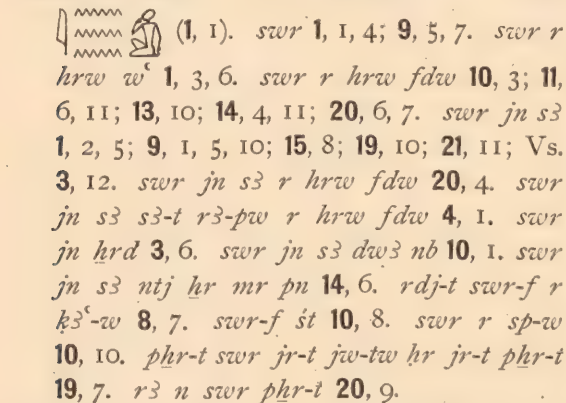 (1, 1). swr 1, 1, 4; 9, 5, 7. swr r
hrw wꜥ 1, 3, 6. swr r hrw fdw 10, 3; 11,
6, 11; 13, 10; 14, 4, 11; 20, 6, 7. swr jn sꜣ
1, 2, 5; 9, 1, 5, 10; 15, 8; 19, 10; 21, 11; Vs.
3, 12. swr jn sꜣ r hrw fdw 20, 4. swr
jn sꜣ sꜣ-t rꜣ-pw r hrw fdw 4, 1. swr
jn ẖrd 3, 6. swr jn sꜣ dwꜣ nb 10, 1. swr
jn sꜣ ntj ẖr mr pn 14, 6. rdj-t swr-f r
ḳꜣꜥ-w 8, 7. swr-f śt 10, 8. swr r sp-w
10, 10. pẖr-t swr jr-t jw-tw ḥr jr-t pẖr-t
19, 7. rꜣ n swr pẖr-t 20, 9.